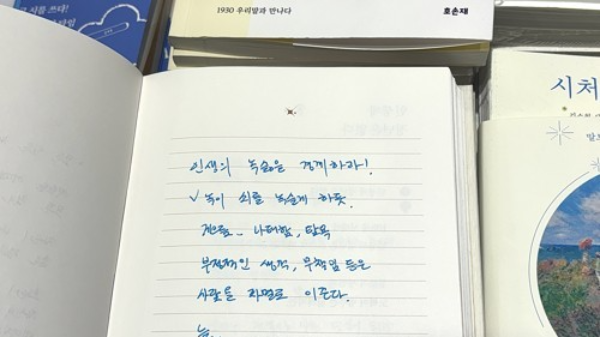 시를 쓰다!
1930 우리말과 만나다
호손재
시처
인생의 녹슮은 경계하라!
✓ 녹이 쇠를 녹슬게 하듯.
게으름.. 나태함, 탐욕
부정적인 생각, 무책임 등은
사람을 파멸로 이끈다.